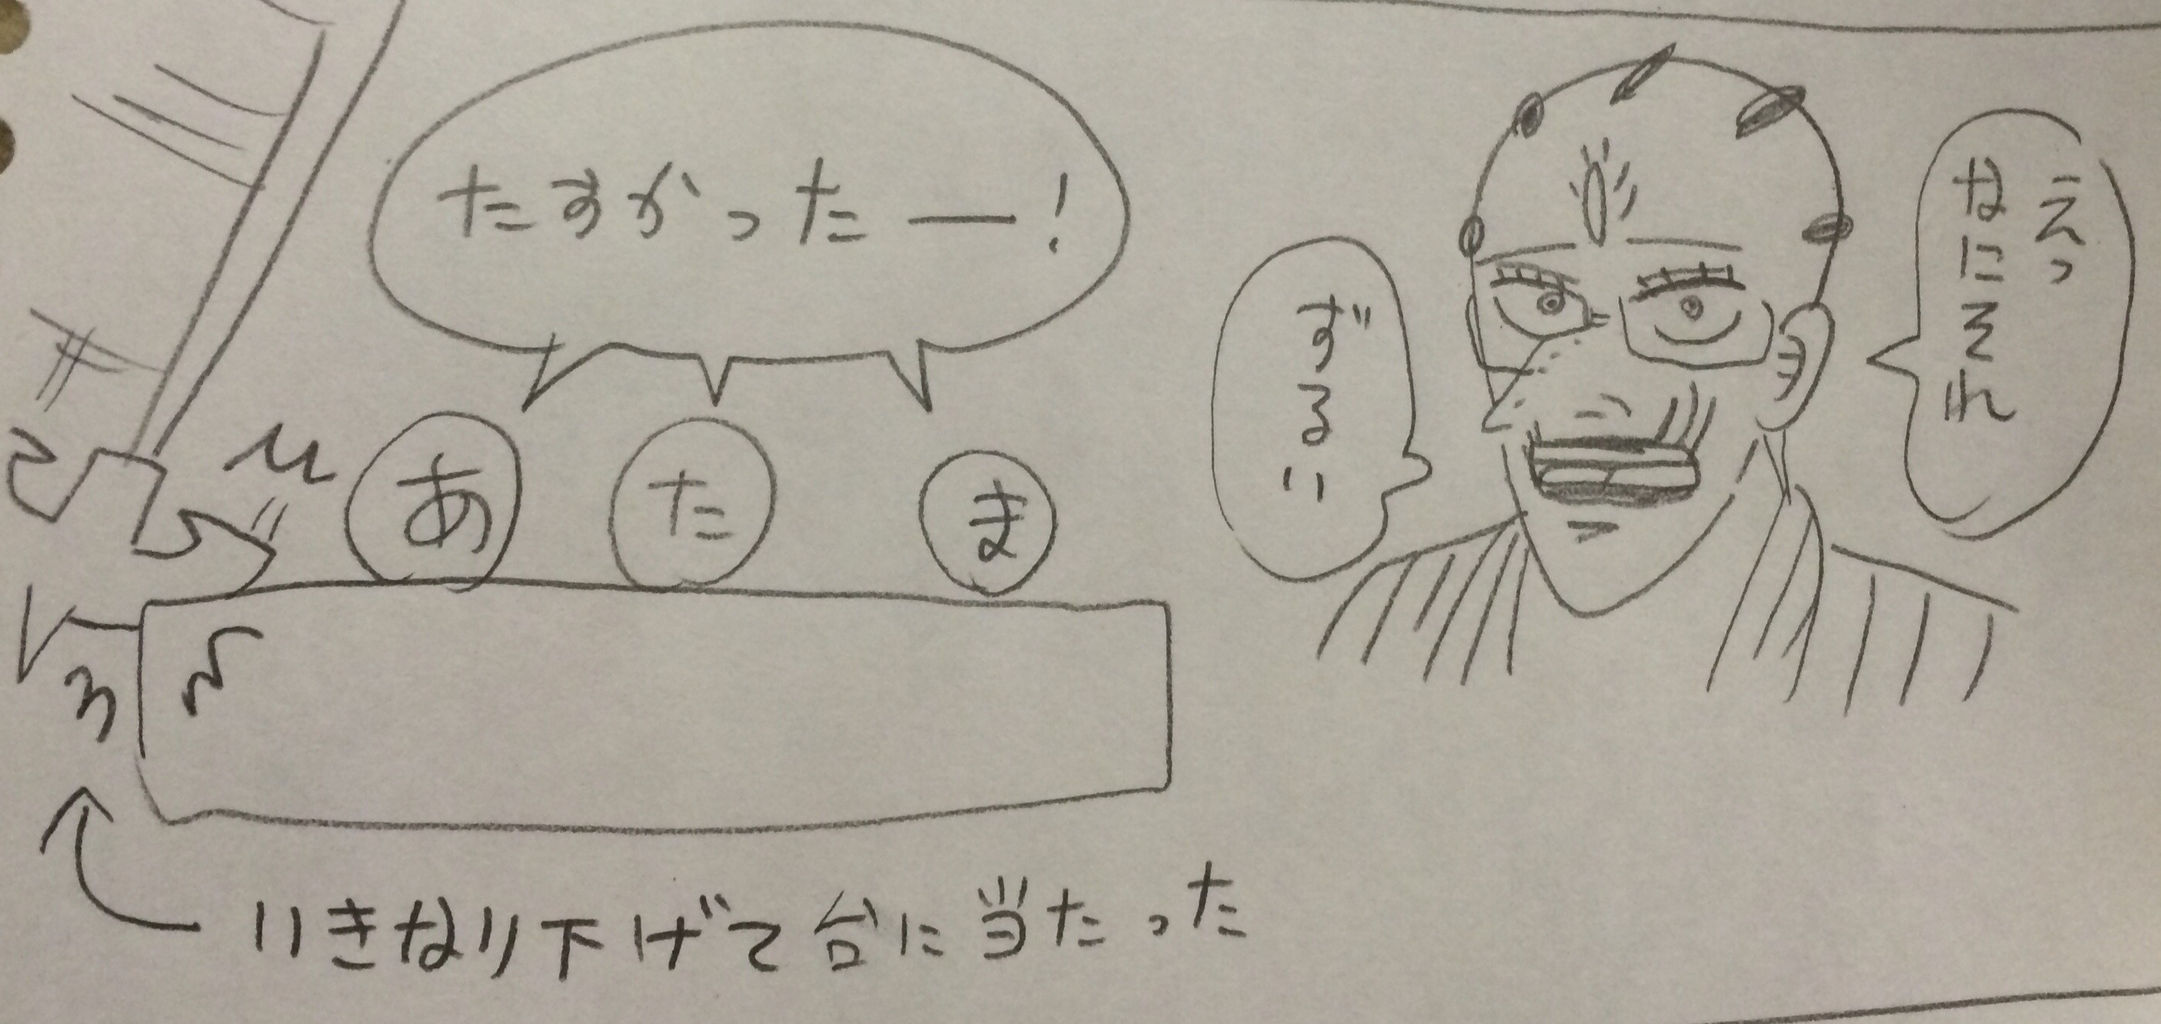 たすかったー!
あ
た
ま
えっ
なにそれ
ずるい
いきなり下げて台に当たった